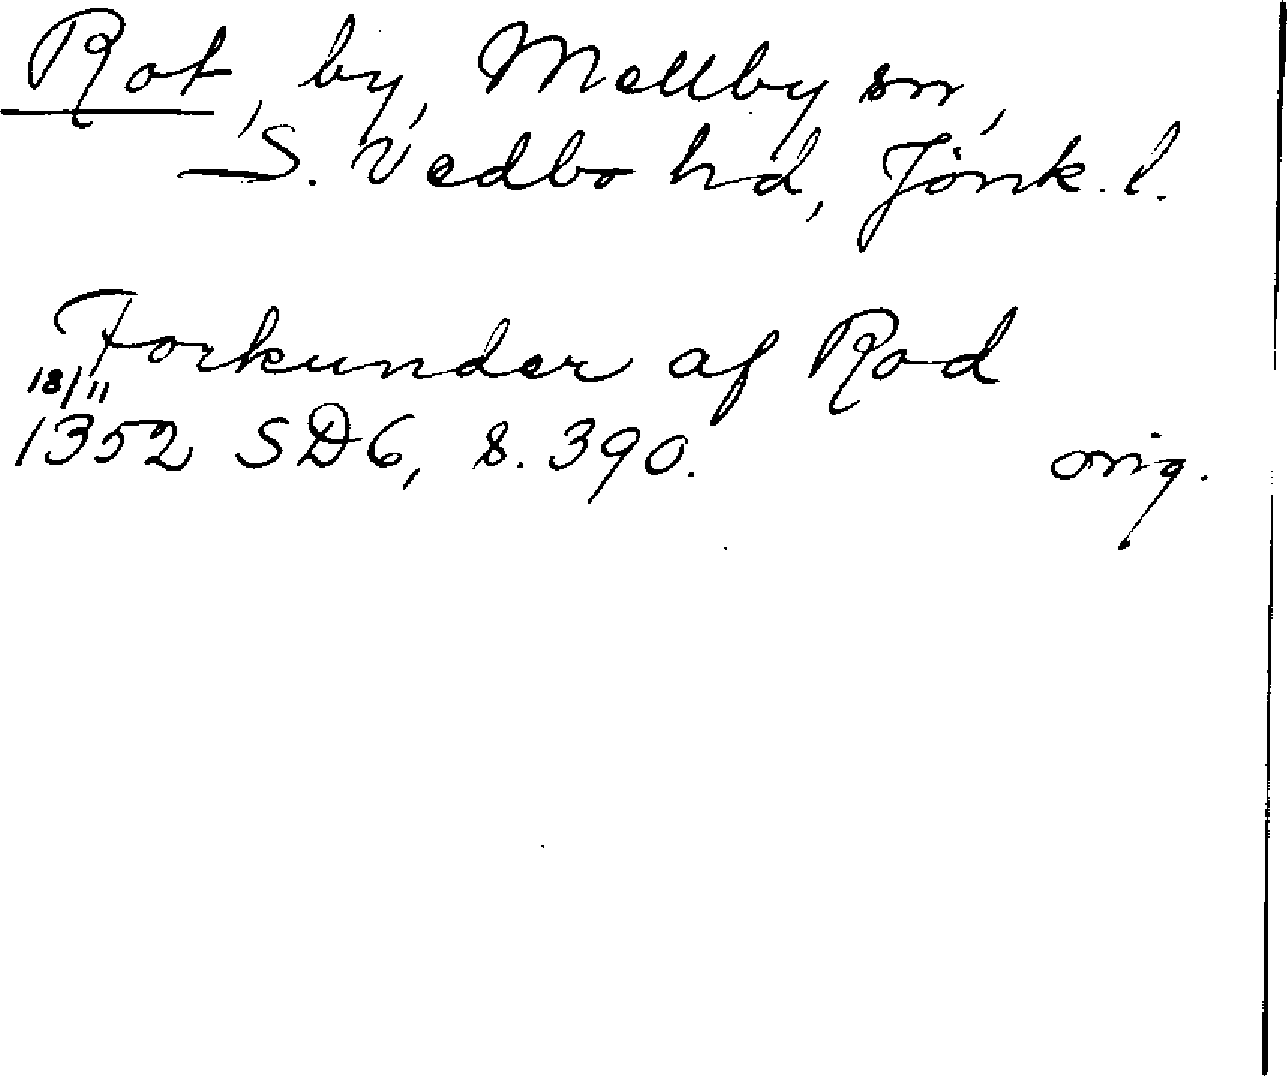 Rot, by, Mellby sn,
S. Vedbo hd, Jönk. l.
Torkunder af Rod
18/11
1352 SD6, s. 390. orig.